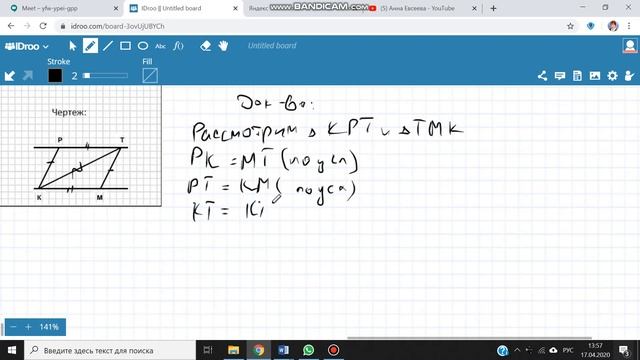 Meet – yfw-ypei-gpp
IDroo || Untitled board
Яндекс
(5) Анна Евсеева - YouTube
WWW.BANDICAM.COM
idroo.com/board-3ovUjUBYCh
IDroo
Untitled board
Stroke
Fill
2
Чертеж:
P
T
K
M
Док-во:
Рассмотрим △ KPT и △TMK
PK = MT (по усл)
PT = KM ( по усл)
KT = Ki
141%
Введите здесь текст для поиска
РУС
13:57
17.04.2020